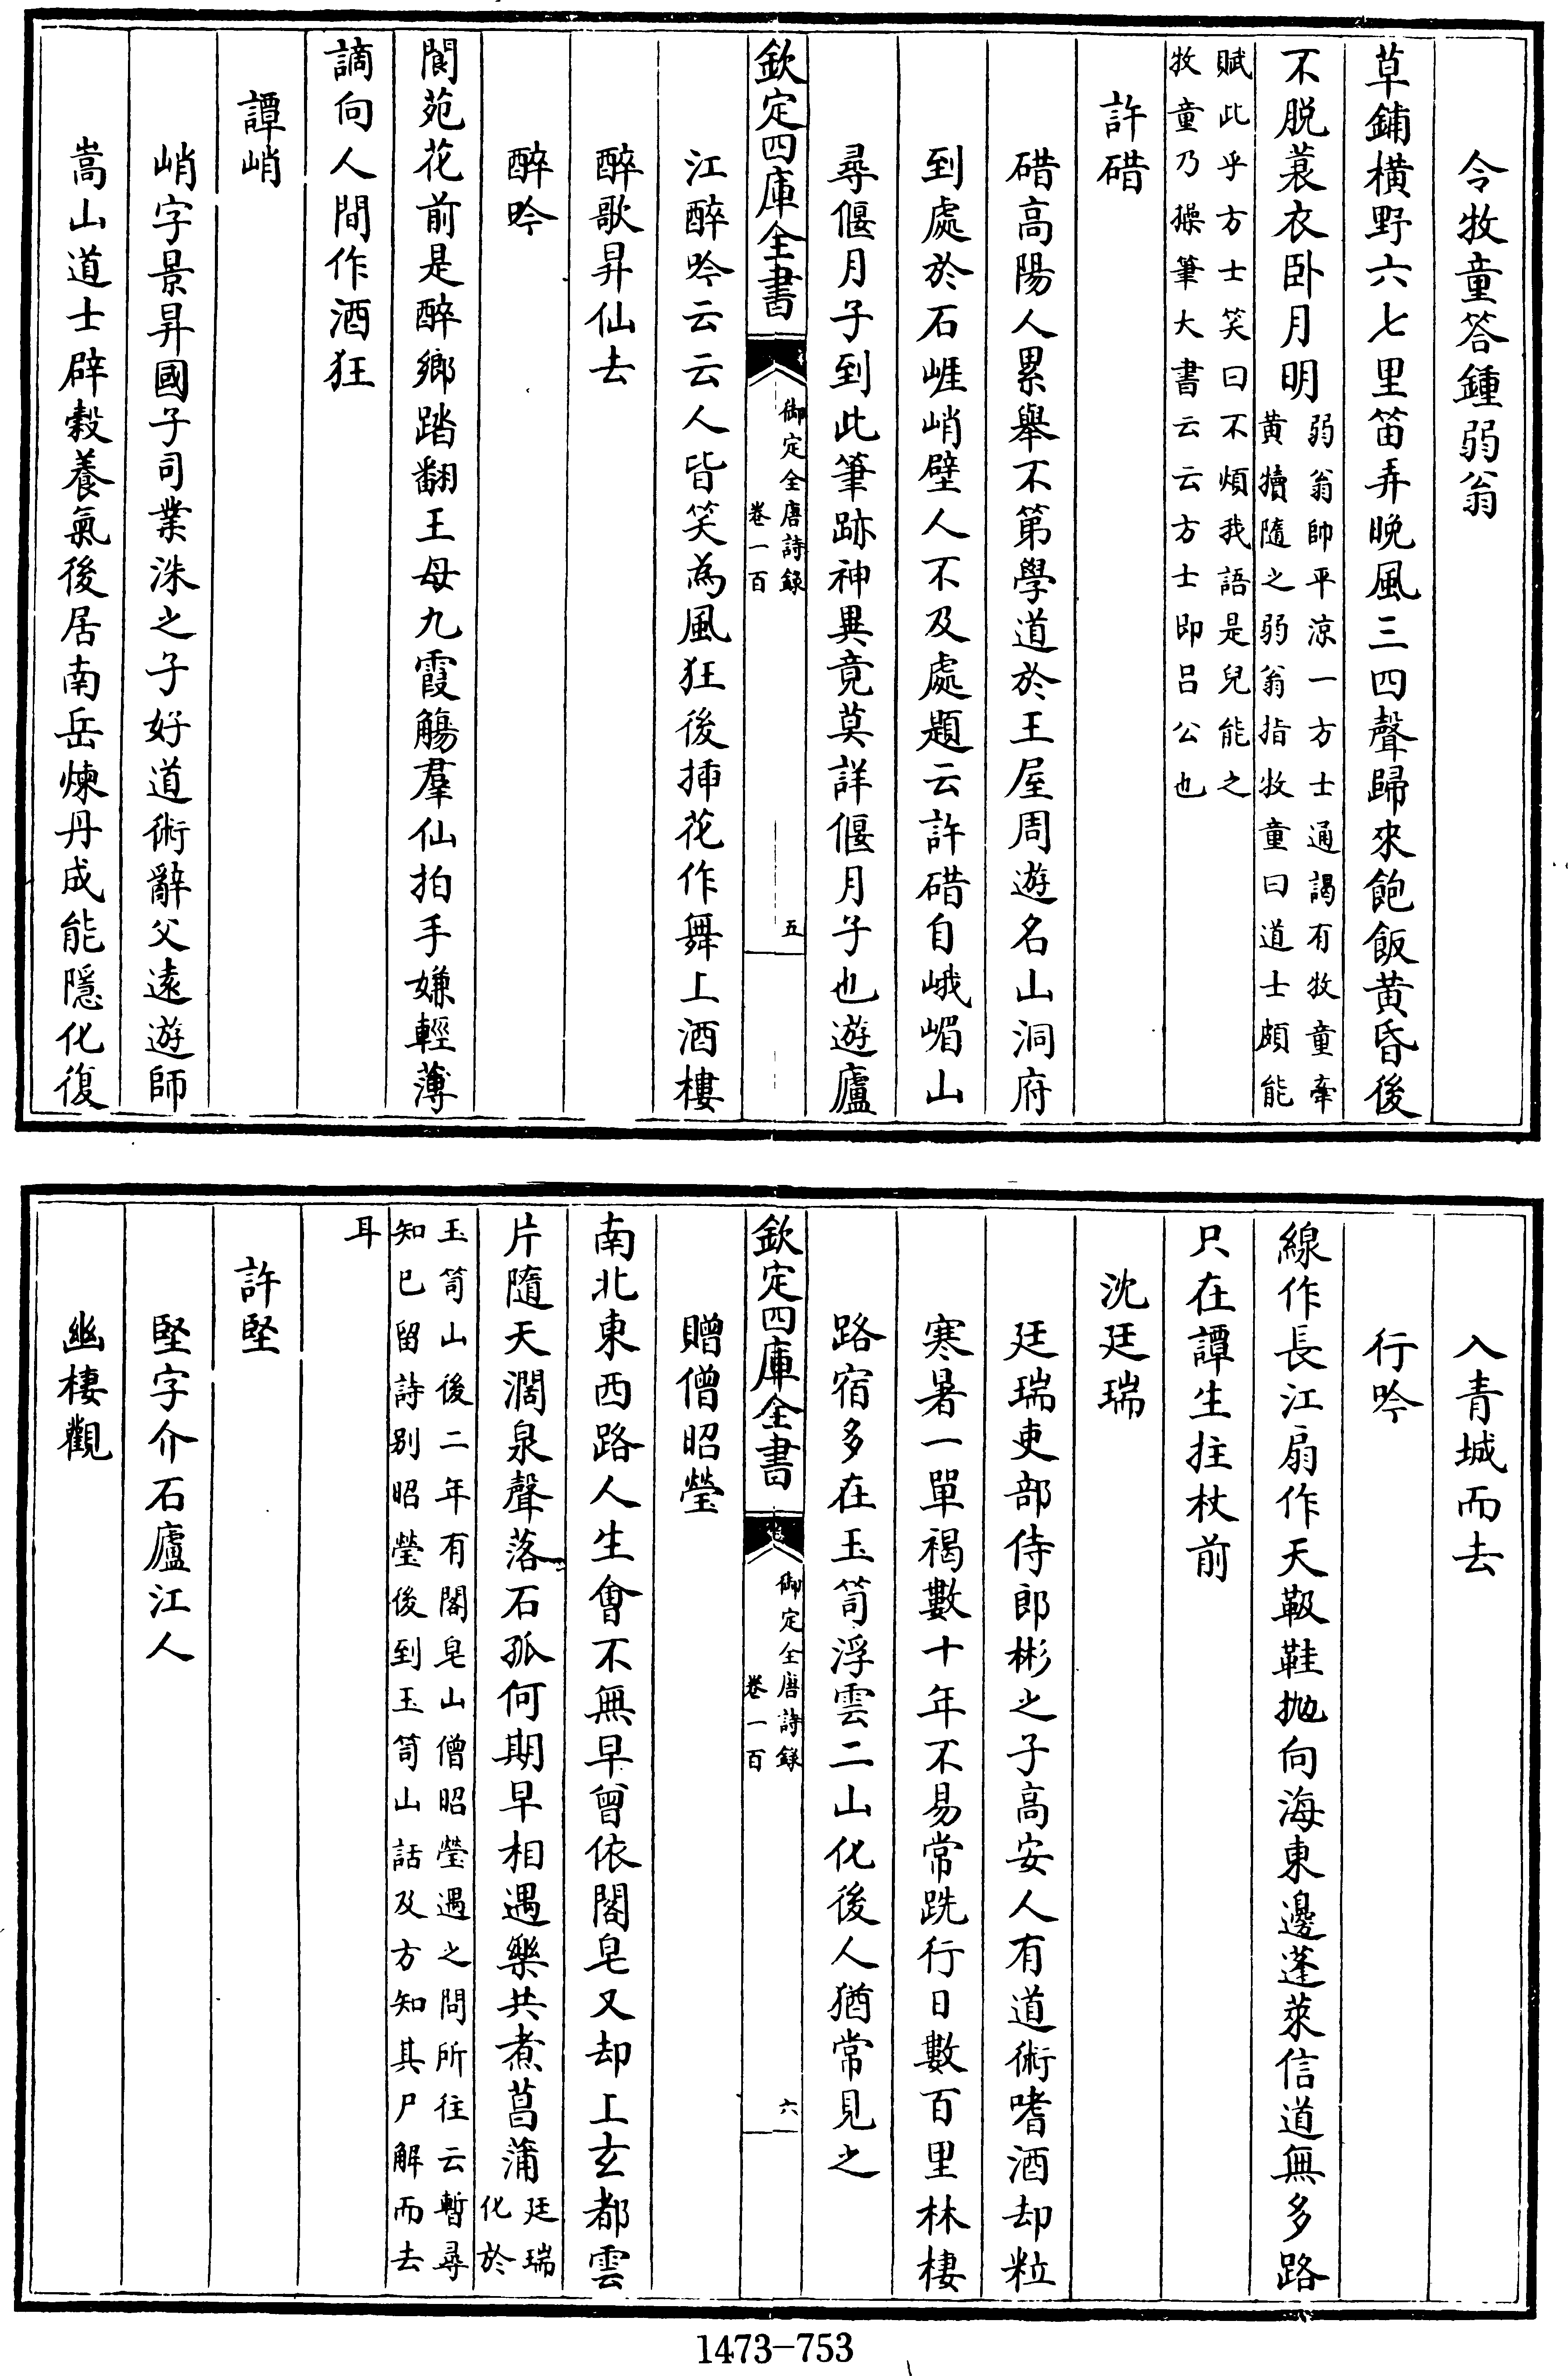 令牧童答鍾弱翁
草鋪橫野六七里笛弄晚風三四聲歸來飽飯黄昏後
不脱蓑衣卧月明弱翁帥平涼一方士通謁有牧童牽
黄犢隨之弱翁指牧童曰道士頗能
賦此乎方士笑曰不煩我語是兒能之
牧童乃操筆大書云云方士即吕公也
許碏
碏高陽人累舉不第學道於王屋周遊名山洞府
到處於石崕峭壁人不及處題云許碏自峨嵋山
尋偃月子到此筆跡神異竟莫詳偃月子也遊廬
欽定四庫全書
御定全唐詩録
卷一百
五
江醉吟云云人皆笑為風狂後揷花作舞上酒樓
醉歌昇仙去
醉吟
閬苑花前是醉鄉踏翻王母九霞觴羣仙拍手嫌輕薄
謫向人間作酒狂
譚峭
峭字景昇國子司業洙之子好道術辭父遠遊師
嵩山道士辟榖養氣後居南岳煉丹成能隱化復
入青城而去
行吟
線作長江扇作天靸鞋抛向海東邊蓬萊信道無多路
只在譚生拄杖前
沈廷瑞
廷瑞吏部侍郎彬之子高安人有道術嗜酒却粒
寒暑一單褐數十年不易常跣行日數百里林棲
路宿多在玉笥浮雲二山化後人猶常見之
欽定四庫全書
御定全唐詩録
卷一百
六
贈僧昭瑩
南北東西路人生會不無早曾依閣皂又却上玄都雲
片隨天濶泉聲落石孤何期早相遇樂共煮菖蒲廷瑞
化於
玉笥山後二年有閣皂山僧昭瑩遇之問所往云暫尋
知已留詩别昭瑩後到玉笥山話及方知其尸解而去
耳
許堅
堅字介石廬江人
幽棲觀
1473-753